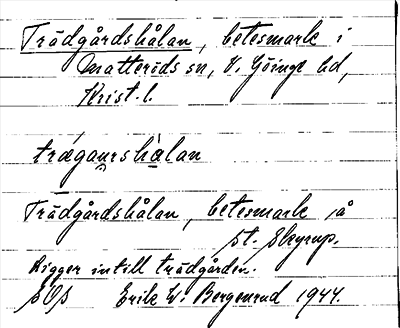 Trädgårdshålan, betesmark i
Matteröds sn, V. Göinge hd,
Krist. l.
trǽgaụrshàlan
Trädgårdshålan, betesmark på
St. Skyrup.
Ligger intill trädgården.
SOS Erik W. Bergenrud 1944.